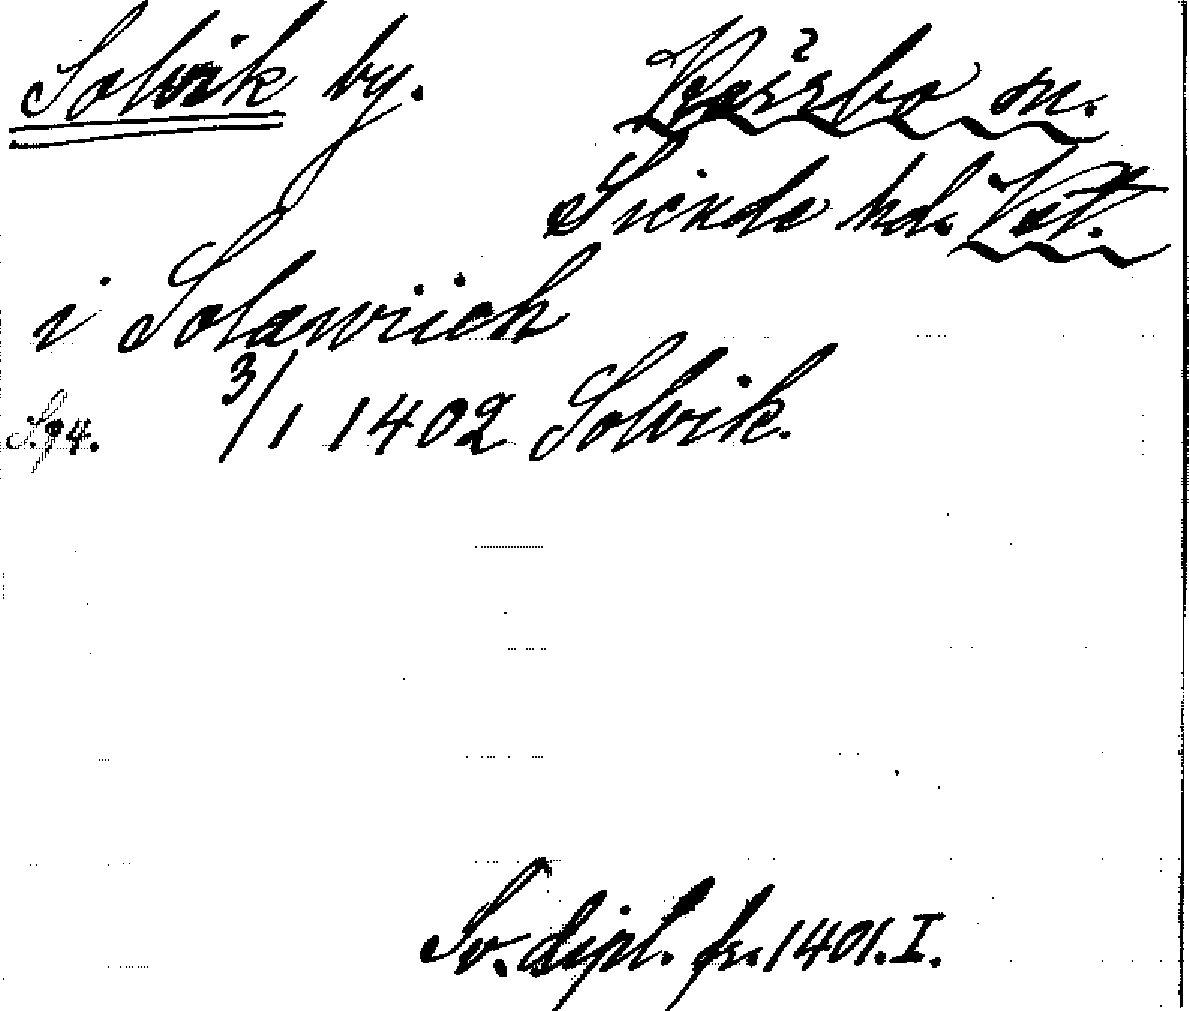 Solvik by. Kärrbo sn.
Siende hd. Vstl.
i Solawiich
S. 94. 3/1 1402 Solvik.
Sv. dipl. fr. 1401. I.